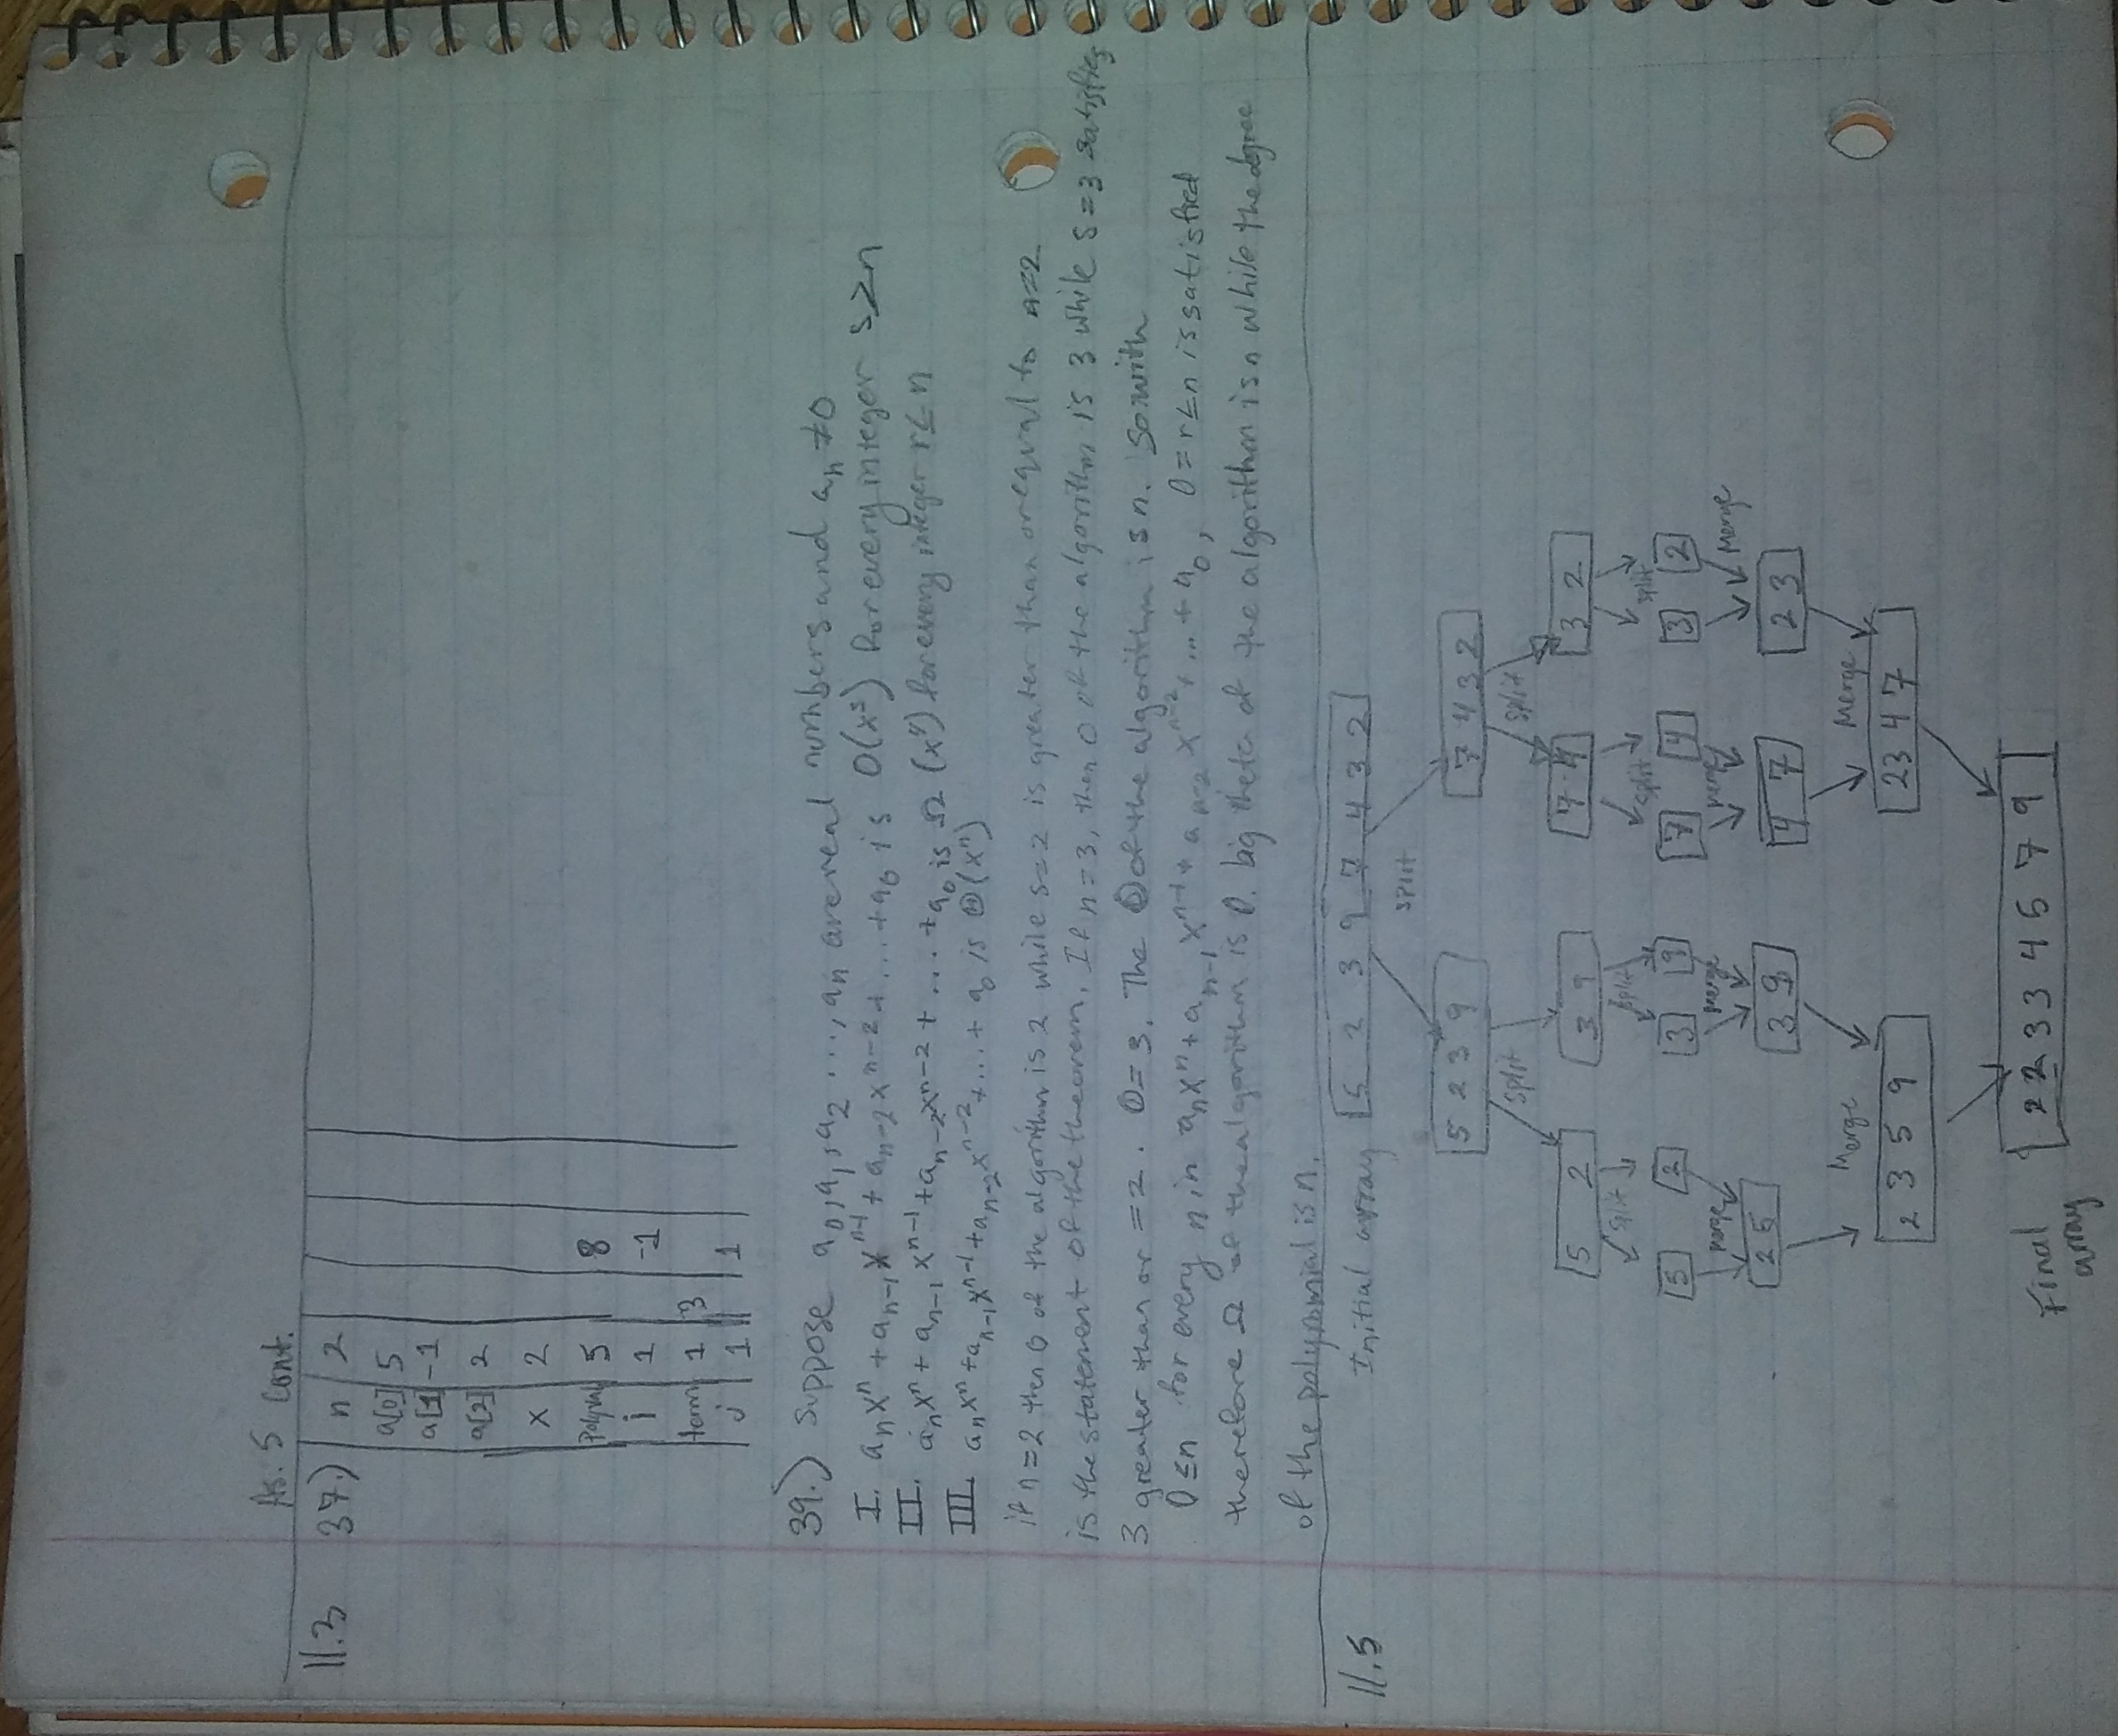 As. 5 Cont.
11.3 37.) n 2
a[0] 5
a[1] -1
a[2] 2
x 2
Polyval 5 8
i 1 -1
term 1 3
j 1 1
39.) Suppose a0, a1, a2 ..., an are real numbers and an ≠ 0
I. anx^n + an-1x^n-1 + an-2x^n-2 + ... + a0 is O(x^s) for every integer s ≥ n
II. anx^n + an-1x^n-1 + an-2x^n-2 + ... + a0 is Ω(x^r) for every integer r ≤ n
III. anx^n + an-1x^n-1 + an-2x^n-2 + ... + a0 is Θ(x^n)
if n=2 then O of the algorithm is 2 while s=2 is greater than or equal to n=2
is the statement of the theorem. If n=3, then O of the algorithm is 3 while s=3 satisfies
3 greater than or =2. O=3. The O of the algorithm is n. So with
0≤n for every n in anx^n + an-1x^n-1 + an-2x^n-2 + ... + a0, 0=r≤n is satisfied
therefore Ω of the algorithm is 0. big theta of the algorithm is n while the degree
of the polynomial is n.
11.5 Initial array 5 2 3 9 7 4 3 2
split
5 2 3 9 7 4 3 2
split split
5 2 3 9 7 4 3 2
split split split split
5 2 3 9 7 4 3 2
merge Merge merge Merge
2 5 3 9 4 7 2 3
Merge Merge
2 3 5 9 2 3 4 7
Final array 2 2 3 3 4 5 7 9